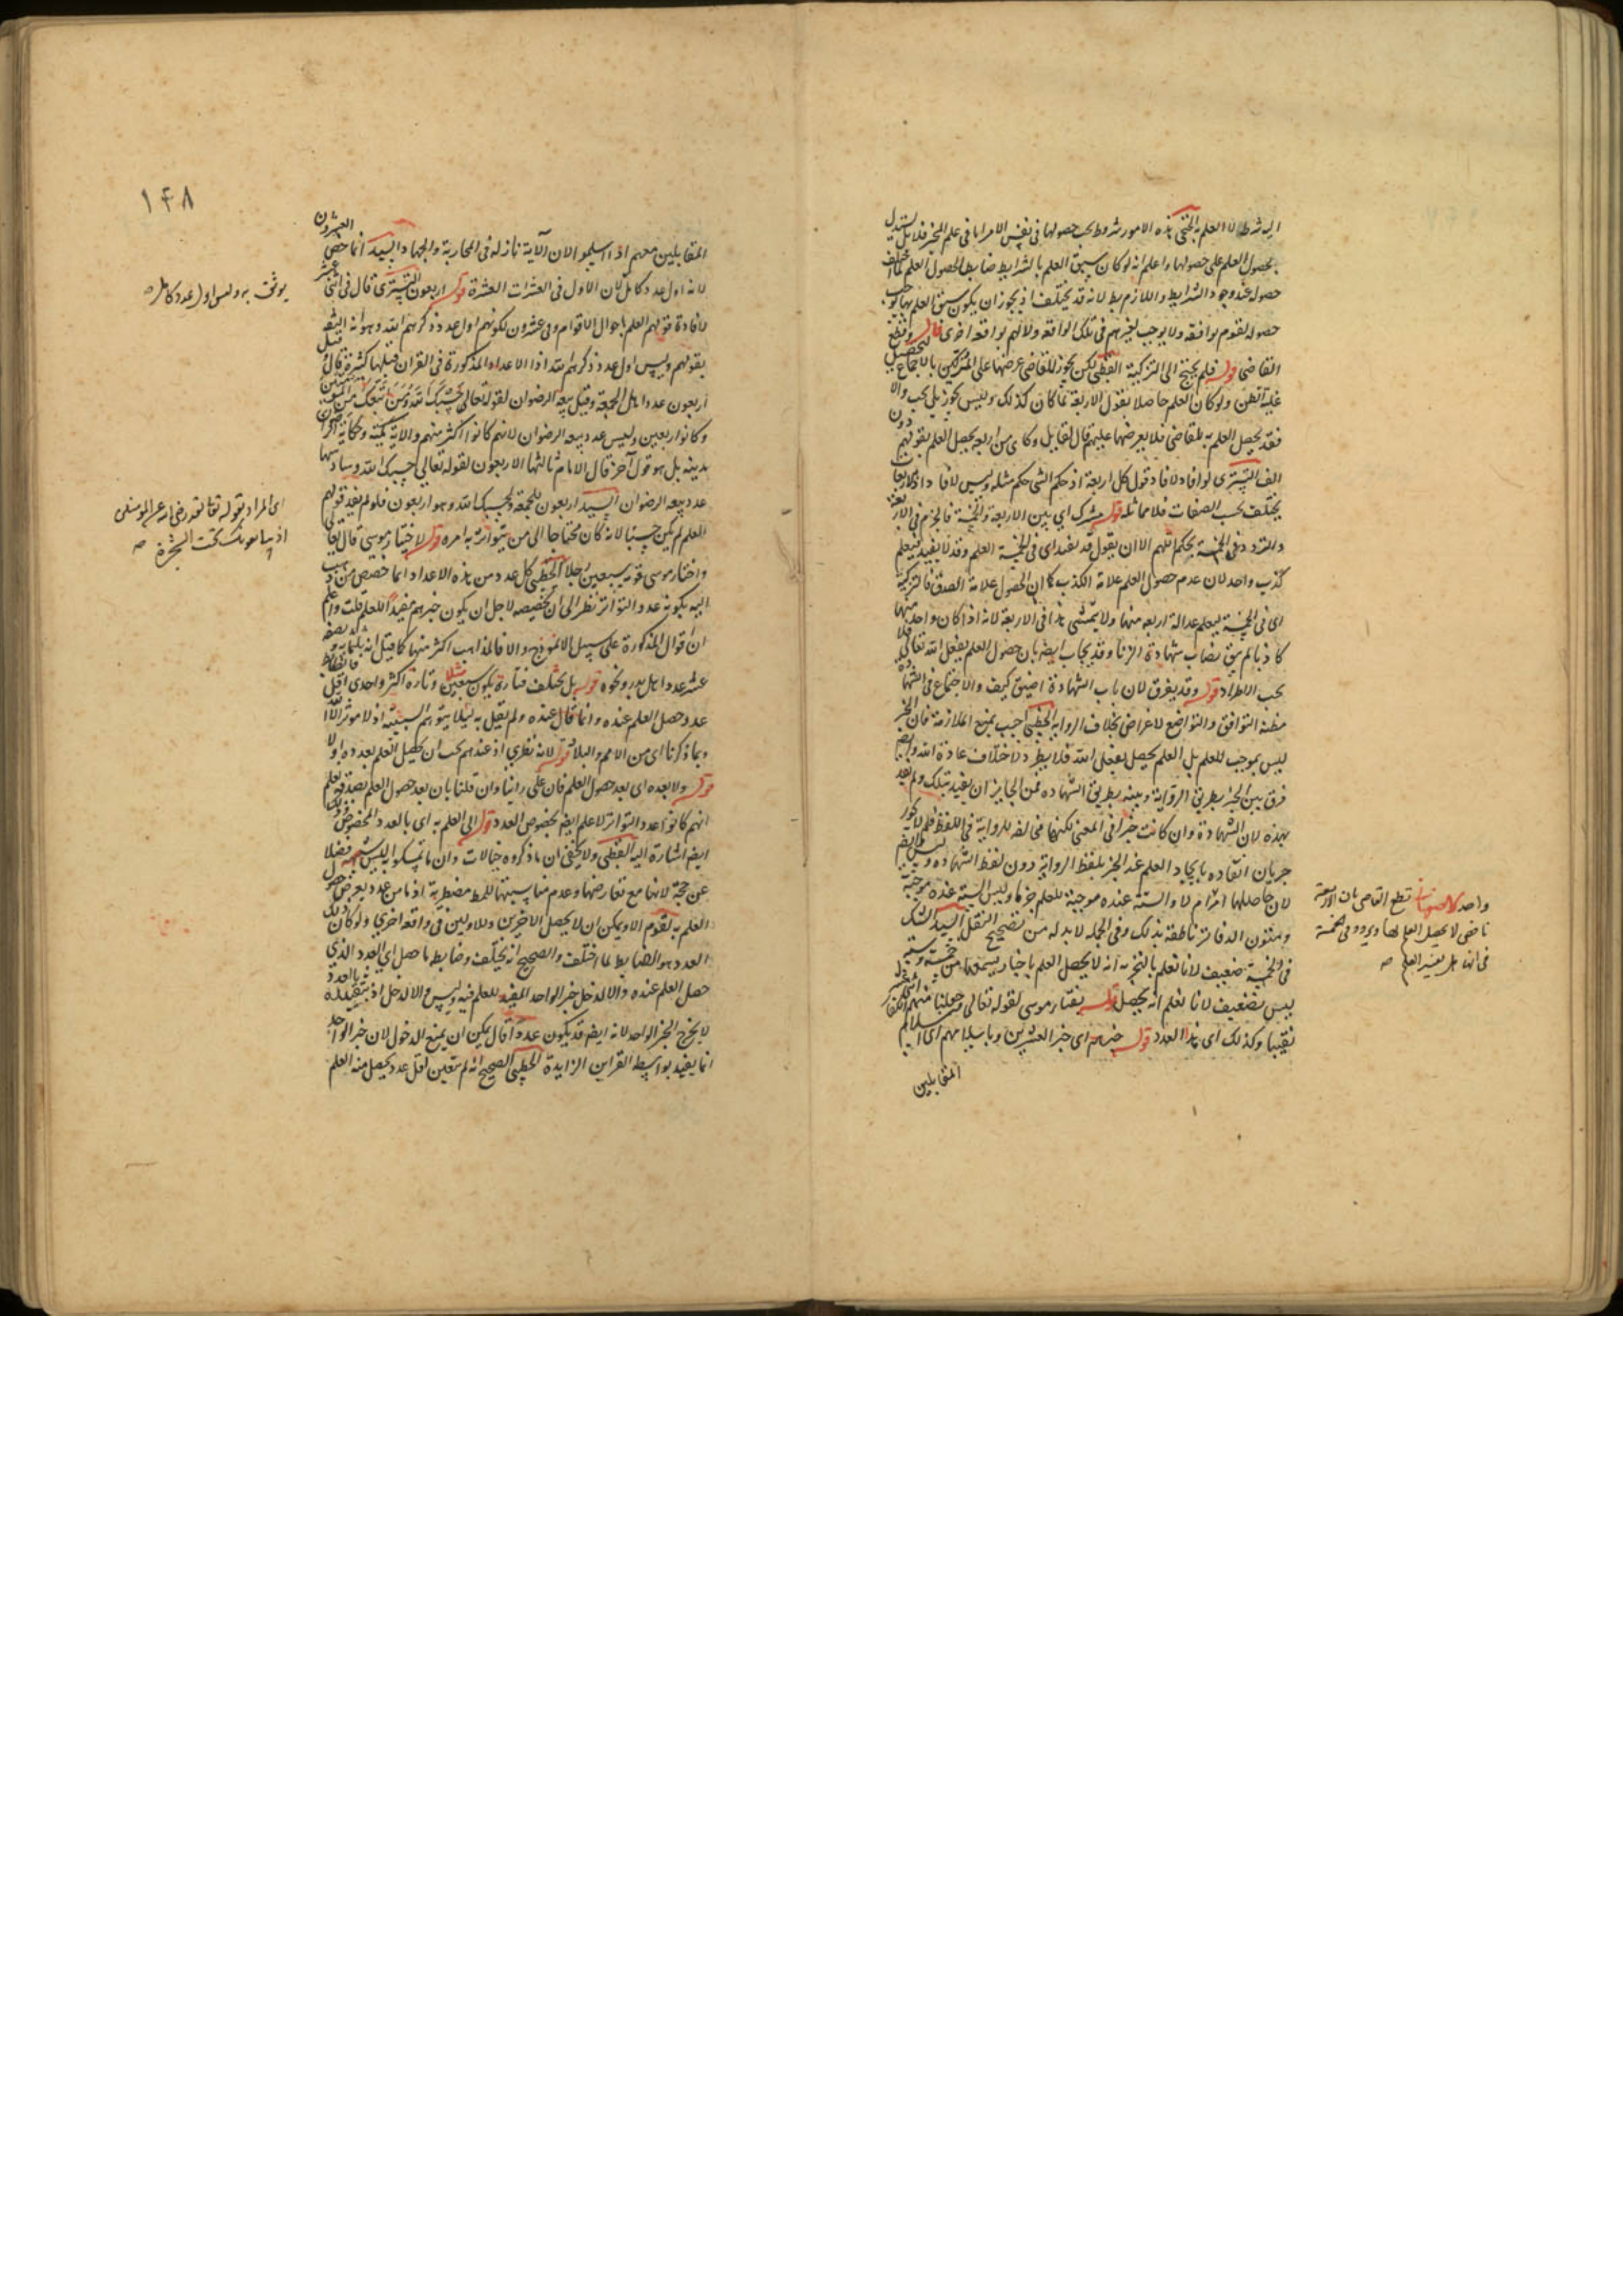 اليه شرط لا العلم به الخنجي هذه الامور شروط يجب حصولها في نفس الامر اما في علم المخبر فلا بل يستدل
بحصول العلم على حصولها واعلم انه لو كان سبق العلم بالشرايط ضابطا لحصول العلم لما اختلف
حصوله عند وجود الشرايط واللازم بط لانه قد يختلف اذ يجوز ان يكون سبق العلم بها
حصوله لقوم بواقعة ولا يوجب لغيرهم في تلك الواقعة ولا لهم بواقعة اخرى قال وقطع
القاضي قوله فلم يحتج الى التزكية القطبي لكن يجوز للقاضي عرضها على المزكين بالاجماع لتحصيل
غلبة الظن ولو كان العلم حاصلا بقول الاربعة لما كان كذلك وليس يجوز بل يجب والا
فقد يحصل العلم به للقاضي فلا يعرضها عليهم قال لقايل وكاى من اربعة يحصل العلم بقولهم دون
الف التستري لو افاد لافاد قول كل اربعة اذ حكم الشي حكم مثله وليس لافاد اذ الاربعات
يختلف بحسب الصفات فلا مماثلة قوله مشترك اي بين الاربعة والخمسة فالجزم في الاربعة
والتردد في الخمسة تحكم اللهم الا ان يقول قد يفيد اى في الخمسة العلم وقد لا يفيد فيعلم
كذب واحد لان عدم حصول العلم علامة الكذب كما ان الحصول علامة الصدق فالتزكية
اى في الخمسة ليعلم عدالة اربعة منها ولا يتمشى هذا في الاربعة لانه اذا كان واحد منها
كاذبا لم يبق نصاب شهادة الزنا وقد يجاب ايضا بان حصول العلم بفعل الله تعالى فلا
يجب الاطراد قوله وقد يفرق لان باب الشهادة اضيق كيف والاجتماع في الشهادة
مظنة التوافق والتواضع لاغراض بخلاف الرواية الخطبي اجيب بمنع الملازمة فان الخبر
ليس بموجب للعلم بل العلم يحصل بفعل الله فلا يطرد لاختلاف عادة الله وايضا
فرق بين الخبر بطريق الرواية وبينه بطريق الشهادة فمن الجايز ان يفيد بتلك ولم يفد
بهذه لان الشهادة وان كانت خبرا في المعنى لكنها مخالفة للرواية في اللفظ
جريان العادة بايجاد العلم عند الخبر بلفظ الرواية دون لفظ الشهادة
لان حاصلها التزام لا والستة عنده موجبة للعلم جزما وليس الستة عنده موجبة
ومتون الدفاتر ناطقة بذلك وفي الجملة لا بد له من تصحيح النقل السيد الشك
في الخمسة ضعيف لانا نعلم بالتجربة انه لا يحصل العلم باخبار يسمعها من خمسة وستة
ليس بضعيف لانا نعلم انه يحصل قوله نقباء موسى لقوله تعالى وجعلنا منهم اثني عشر
نقيبا وكذلك اى هذا العدد قوله خبرهم اى خبر العشرين وباسلامهم اى اسلام
المقابلين
قطع القاضي بان الاربعة
ناقص لا يحصل العلم بها وتردد في الخمسة
في انها هل تفيد العلم صه
١٤٨
المقابلين معهم اذا اسلموا لان الآية نازلة في المحاربة والجهاد السيد انما خص العشرون
لانه اول عدد كامل لان الاول في العشرات العشرة قوله اربعون التستري قال في اثني عشر
لافادة قولهم العلم باحوال الاقوام وفي عشرون لكونهم اول عدد ذكرهم الله وهو انه اليق
بقولهم وليس اول عدد ذكرهم الله اذ الاعداد المذكورة في القران قبلها كثيرة قال
اربعون عدد اهل الجمعة وقيل بيعة الرضوان لقوله تعالى حسبك الله ومن اتبعك من المؤمنين
وكانوا اربعين وليس عدد بيعة الرضوان لانهم كانوا اكثر منهم والاية مكية وحكاية الرضوان
مدينة بل هو قول آخر قال الامام ثالثها الاربعون لقوله تعالى حسبك الله وسادسها
عدد بيعة الرضوان السيد اربعون للجمعة ولحسبك الله وهو اربعون فلو لم يفد قولهم
العلم لم يكن حسبنا لانه كان محتاجا الى من يتواتر به امره قوله لاختيار موسى قال تعالى
واختار موسى قومه سبعين رجلا الخطبي كل عدد من هذه الاعداد انما خصص من ذهب
اليه بكونه عدد التواتر نظرا الى ان تخصيصه لاجل ان يكون خبرهم مفيدا للعلم قلت واعلم
ان اقوال المذكورة على سبيل الانموذج والا فالمذاهب اكثر منها كما قيل انه ثلثمائة وبضعة
عشر عدد اهل بدر ونحوه قوله بل يختلف فتارة يكون سبعين مثلا وتارة اكثر واحدى اقل فالضابط
عدد حصل العلم عنده وانما قال عنده ولم يقل به ليلا يتوهم السببية اذ لا موثر الا الله
وبما ذكرنا اى من الامم والبلاد قوله لانه نظري اذ عندهم يجب ان يحصل العلم بعدده اولا
قوله ولا بعده اى بعد حصول العلم فان على راينا وان قلنا بان بعد حصول العلم بصدقهم يعلم
انهم كانوا عدد التواتر لا علم ايضا بخصوص العدد قوله الى العلم به اى بالعدد المخصوص
ايضا اشارة اليه القطبي ولا يخفى ان ما ذكروه خيالات وان ما تمسكوا به ليس بشبهة فضلا
عن حجة لانها مع تعارضها وعدم مناسبتها للمط مضطربة اذ ما من عدد يعرض حصول
العلم به لقوم الا ويمكن ان لا يحصل لآخرين وللاولين في واقعة اخرى ولو كان ذلك
العدد هو الضابط لما اختلف والصحيح انه يختلف وضابطه ما حصل اي العدد الذي
حصل العلم عنده والا لدخل خبر الواحد المفيد للعلم فيه وليس والا لدخل اذ بتقييده بالعدد
لا يخرج الخبر الواحد لانه ايضا قد يكون عددا قال يمكن ان يمنع الدخول لان خبر الواحد
انما يفيد بواسطة القراين الزايدة الخطبي الصحيح انه لم يتعين اقل عدد يحصل منه العلم
يوثق به وليس اول عدد كامل صه
اى المراد بقوله تعالى لقد رضي الله عن المؤمنين
اذ يبايعونك تحت الشجرة صه